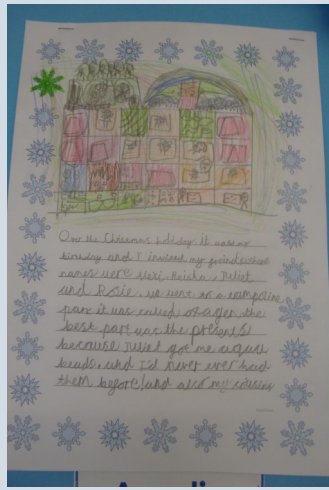 On the Christmas holiday it was my
birthday and I invited my friends whose
names were Meri, Keisha, Juliet
and Rosie. We went to a
park it was called oxagen the
best part was the presents
because Juliet got me aqua
beads and I'd never ever had
them before! and also my cousins